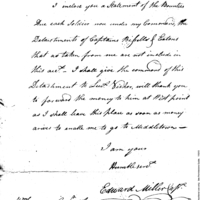 I inclose you a Statement of the Bounties
Due each Soldier now under my Command, the
Detachments of Captains &
that as taken from me are not included in
this acct. I shall give the command of this
Detachment to Lieut. will thank you
to forward the money to him at West point
as I shall leave this place as soon as money
arives to enable me to go to Middletown
I am yours
Humble servt.
Edward Miller Capt.